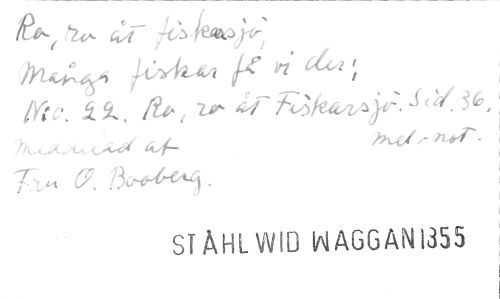 Ro, ro åt fiskarsjö,
Många fiskar få vi der!,
No. 22. Ro, ro åt Fiskarsjö. Sid. 36,
meddelad af mel-not.
Fru O. Booberg.
STÅHL WID WAGGAN 1355